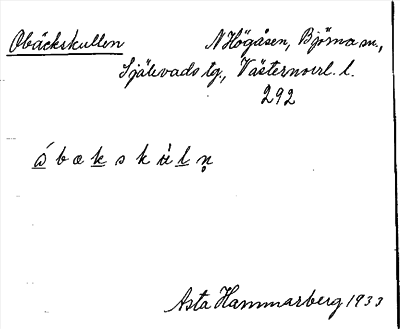 Obäckskullen N Högåsen, Björna sn.,
Själevads tg., Västernorrl. l.
292
å b æ k s k ù l n̥
Asta Hammarberg 1933